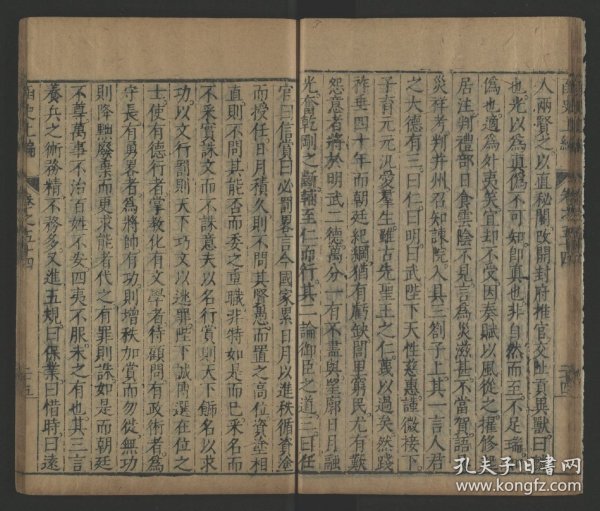 人兩賢之以直秘閣改開封府推官交趾貢異獸曰
也光以為真偽不可知即真也非自然而至不足瑞
偽也適為外夷笑宜卻不受因奏賦以風從之擢修起
居注判禮部日食雲陰不見言為災滋甚不當賀
災祥考判并州召知諫院入具三劄子上其一言人君
之大德有三曰仁曰明曰武陛下天性慈惠謹微接下
子育元元汎愛羣生雖古先聖王之仁蔑以過矣然踐
祚垂四十年而朝廷紀綱猶有虧缺閭里窮民尤有歎
怨意者將於明武二德萬分一有不盡與望廓日月融
光奮乾剛之斷輔至仁而行其二論御臣之道一曰任
官曰信賞曰必罰畧言今國家累日月以進秩循資塗
而授任日月積久則不問其賢愚而置之高位資塗相
直則不問其能否而委之重職非特如是而已來名而
不釆實誅文而不誅意夫以名行賞則天下飾名以求
功以文行罰則天下巧文以逃罪陛下誠慎選在位之
士使有德行者掌敎化有文學者待顧問有政術者為
守長有勇畧者為將帥有功則增秩加賞而勿從無功
則降黜廢棄而更求能者代之有罪則誅如是而朝廷
不尊萬事不治百姓不安四夷不服未之有也其三言
養兵之術務精不務多又進五規曰保業曰惜時曰遠
函史上編
卷之五十四
二十五
孔夫子旧書网
www.kongfz.com